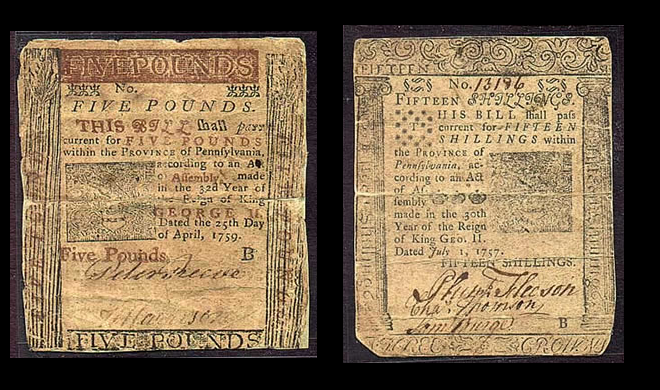 FIVE POUNDS
No.
FIVE POUNDS.
THIS BILL shall pass
current for FIVE POUNDS
within the PROVINCE of Pennsylvania,
according to an Act
of Assembly, made
in the 32d Year of
the Reign of King
GEORGE II.
Dated the 25th Day
of April, 1759.
Five Pounds B
FIVE POUNDS
FIFTEEN
No. 13186
FIFTEEN SHILLINGS.
THIS BILL shall pass
current for FIFTEEN
SHILLINGS within
the PROVINCE of
Pennsylvania, ac-
cording to an Act
of As-
sembly
made in the 30th
Year of the Reign
of King GEO. II.
Dated July 1, 1757.
FIFTEEN SHILLINGS.
B
THREE CROWNS